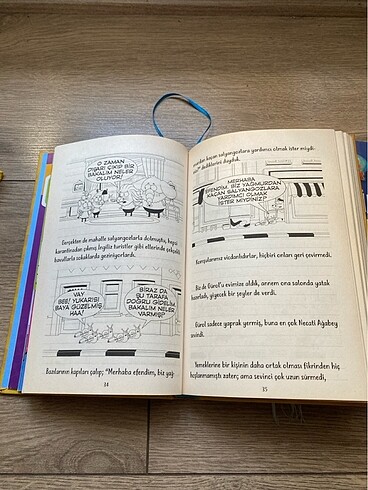 O ZAMAN
DIŞARI ÇIKIP BİR
BAKALIM NELER
OLUYOR!
Gerçekten de mahalle salyangozlarla dolmuştu, hepsi
karantinadan çıkmış İngiliz turistler gibi ellerinde çekçekli
bavullarla sokaklarda geziniyorlardı.
VAY
BEE! YUKARISI
BAYA GÜZELMİŞ
HAA!
BİRAZ DA
ŞU TARAFA
DOĞRU GİDELİM,
BAKALIM NELER
VARMIŞ?
Bazılarının kapıları çalıp; "Merhaba efendim, biz yağ-
34
murdan kaçan salyangozlara yardımcı olmak ister miydi-
dediklerini duyduk.
MERHABA
EFENDİM, BİZ YAĞMURDAN
KAÇAN SALYANGOZLARA
YARDIMCI OLMAK
İSTER MİYDİNİZ?
Komşularımız vicdanlıdırlar, hiçbiri onları geri çevirmedi.
Biz de Gürol'u evimize aldık, annem ona salonda yatak
hazırladı, yiyecek bir şeyler de verdi.
Gürol sadece yaprak yermiş, buna en çok Necati Ağabey
sevindi.
Yemeklerine bir kişinin daha ortak olması fikrinden hiç
hoşlanmamıştı zaten; ama sevinci çok uzun sürmedi,
35